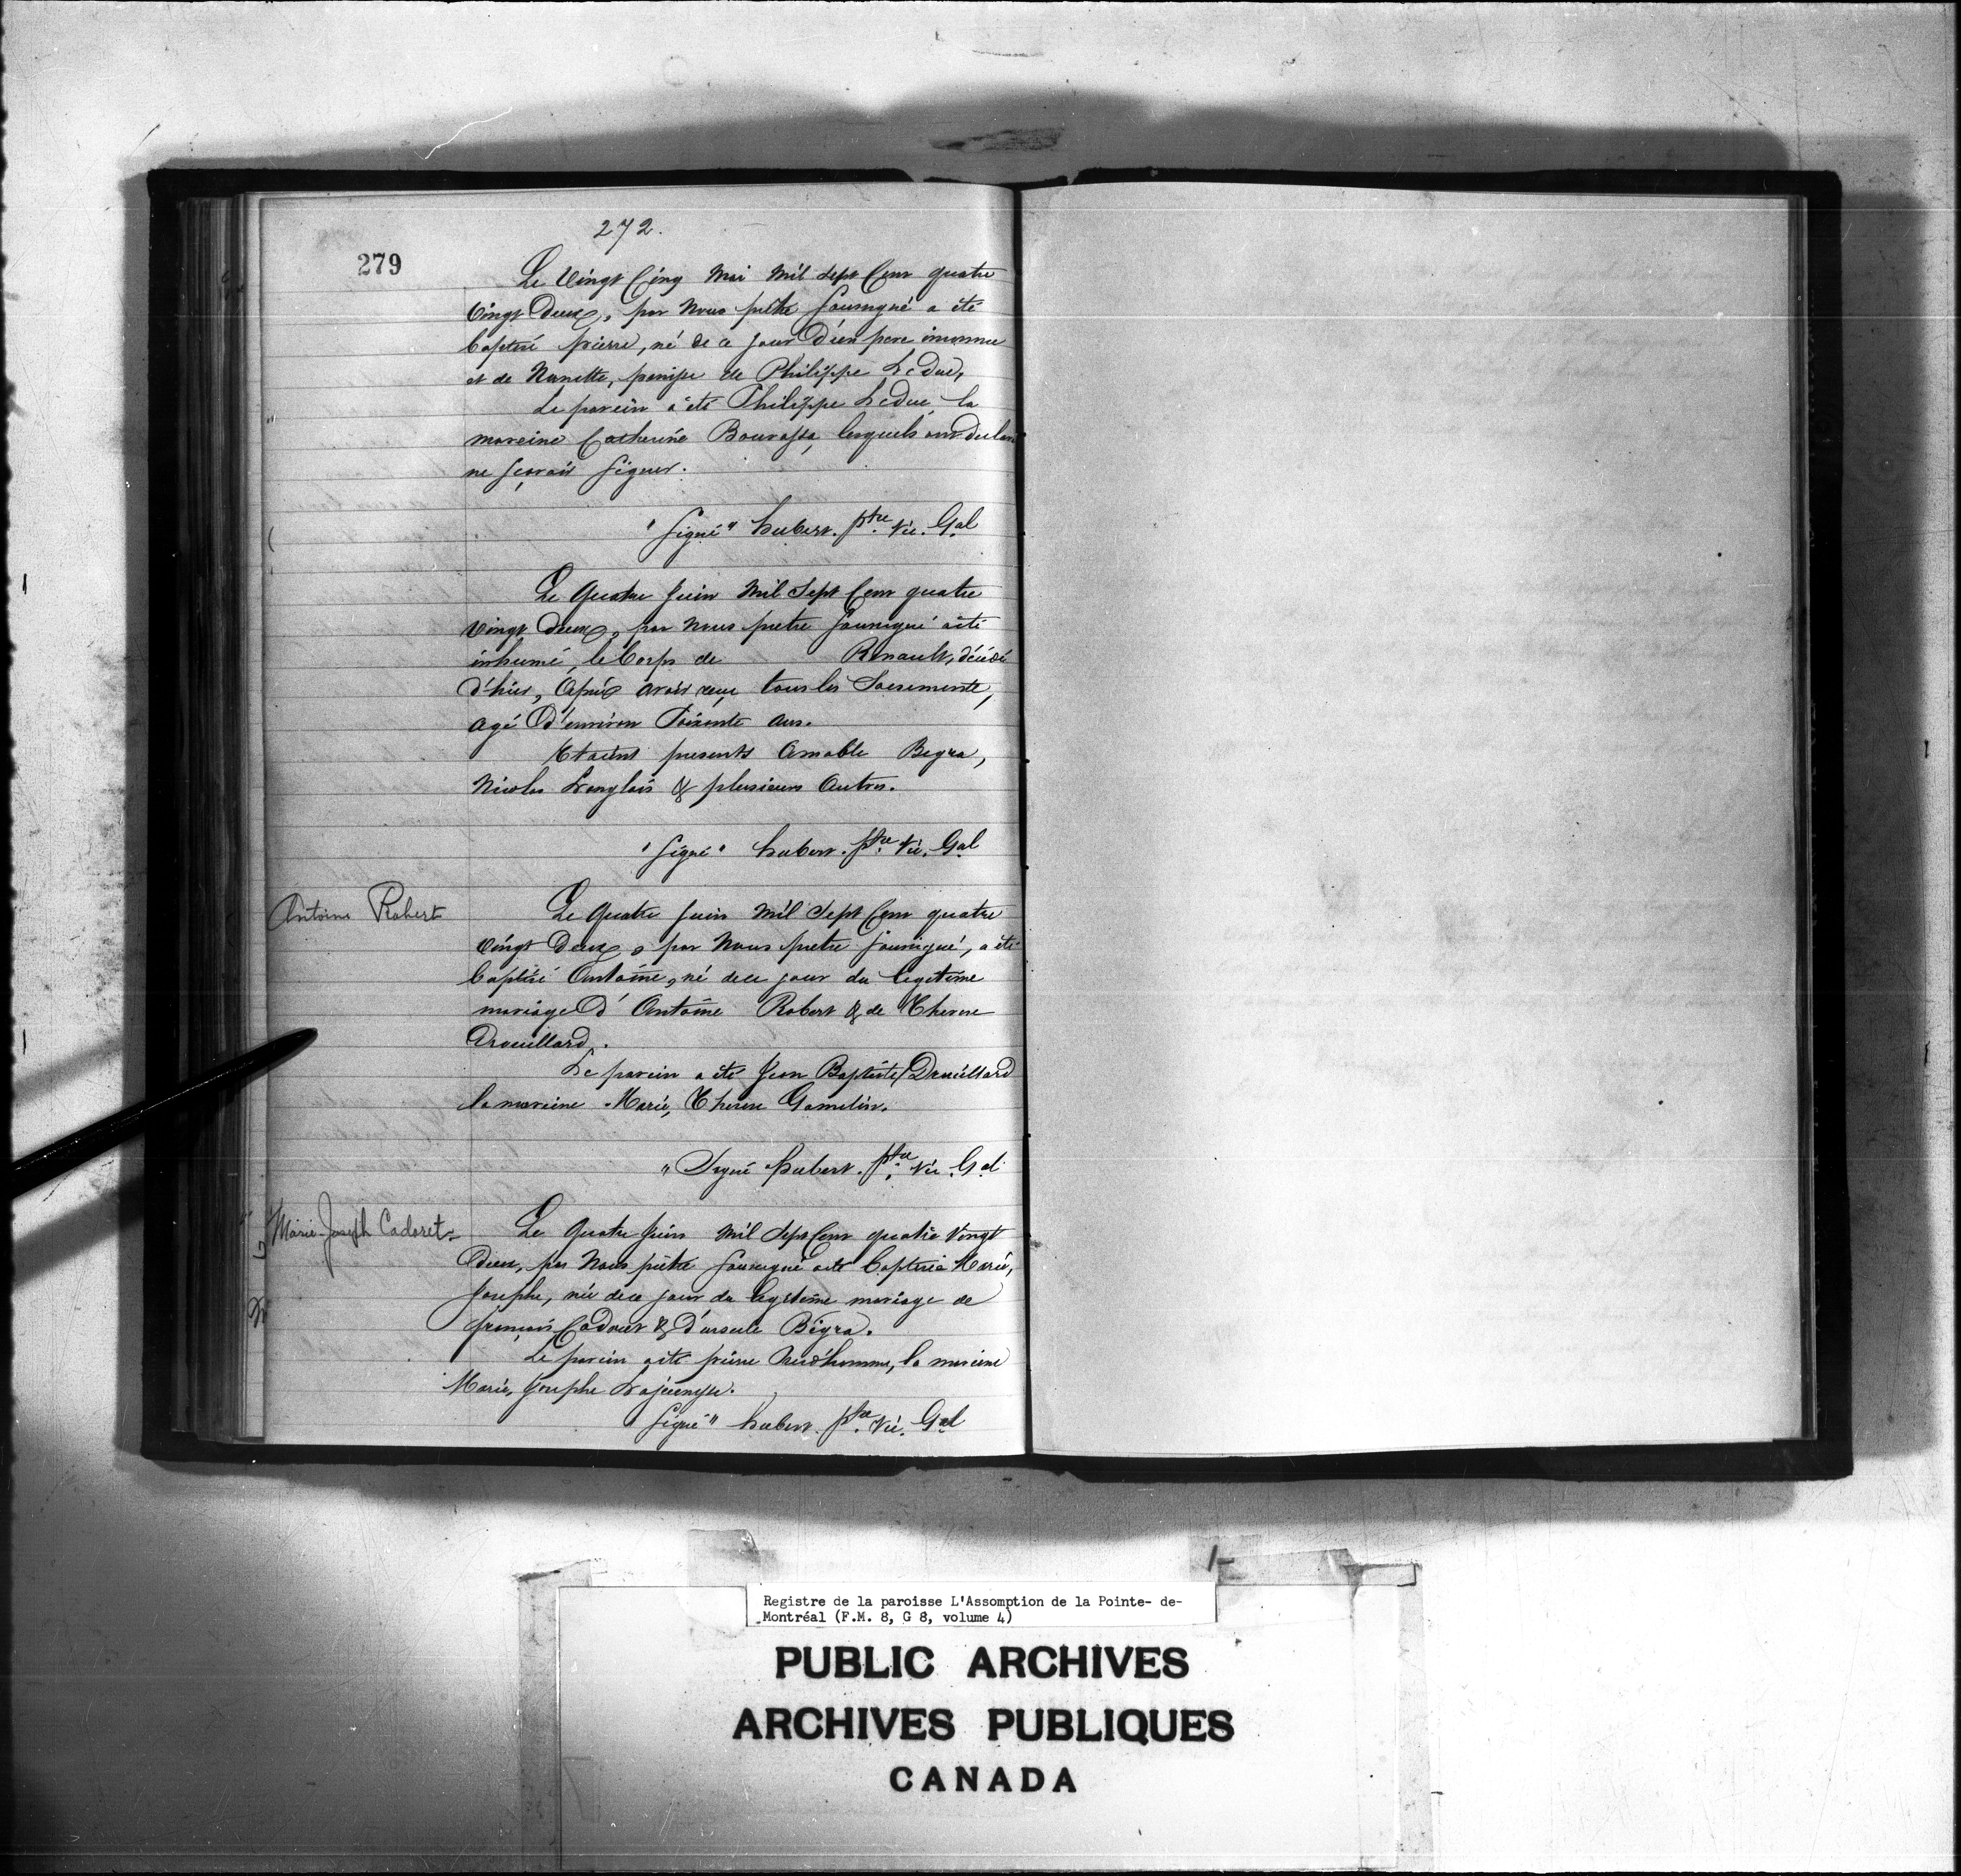 272.
279
Le Vingt Cinq Mai Mil Sept Cent quatre
Vingt Deux, par Nous prêtre soussigné a été
baptisé pierre, né de ce jour D'un pere inconnu
et de Nanette, panise de Philippe LeDuc,
Le parein a été Philippe LeDuc la
mareine Catherine Bourassa, lesquels ont declaré
ne sçavoir signer.
"signé" hubert. ptre Vic. Gal
Le Quatre juin Mil Sept Cent quatre
vingt deux, par Nous pretre soussigné a été
inhumé, le Corps de Renault, décédé
d'hier, Après avoir reçu tous les Sacrements,
agé D'environ Soixante ans.
Etaient presents Amable Begra,
Nicolas Langlois & plusieurs Autres.
"signé" hubert. ptre Vic. Gal
Antoine Robert
Le Quatre juin Mil Sept Cent quatre
Vingt Deux, par Nous pretre soussigné, a été
baptisé Antoine, né de ce jour du legitime
mariage D'Antoine Robert & de Therese
Drouillard.
Le parein a été Jean Baptiste Drouillard
la mareine Marie, Therese Gamelin.
"Signé hubert. ptre Vic. Gal
Marie-Joseph Cadoret
Le Quatre juin Mil Sept Cent quatre Vingt
Deux, par Nous prêtre soussigné a été baptisée Marie,
Josephe, née de ce jour du legitime mariage de
françois Cadoret & d'ursule Bégra.
Le parein a été pierre Prud'homme, la mareine
Marie, Josephe Lajeunesse.
"signé" hubert. ptre Vic. Gal
Registre de la paroisse L'Assomption de la Pointe- de-
Montréal (F.M. 8, G 8, volume 4)
PUBLIC ARCHIVES
ARCHIVES PUBLIQUES
CANADA